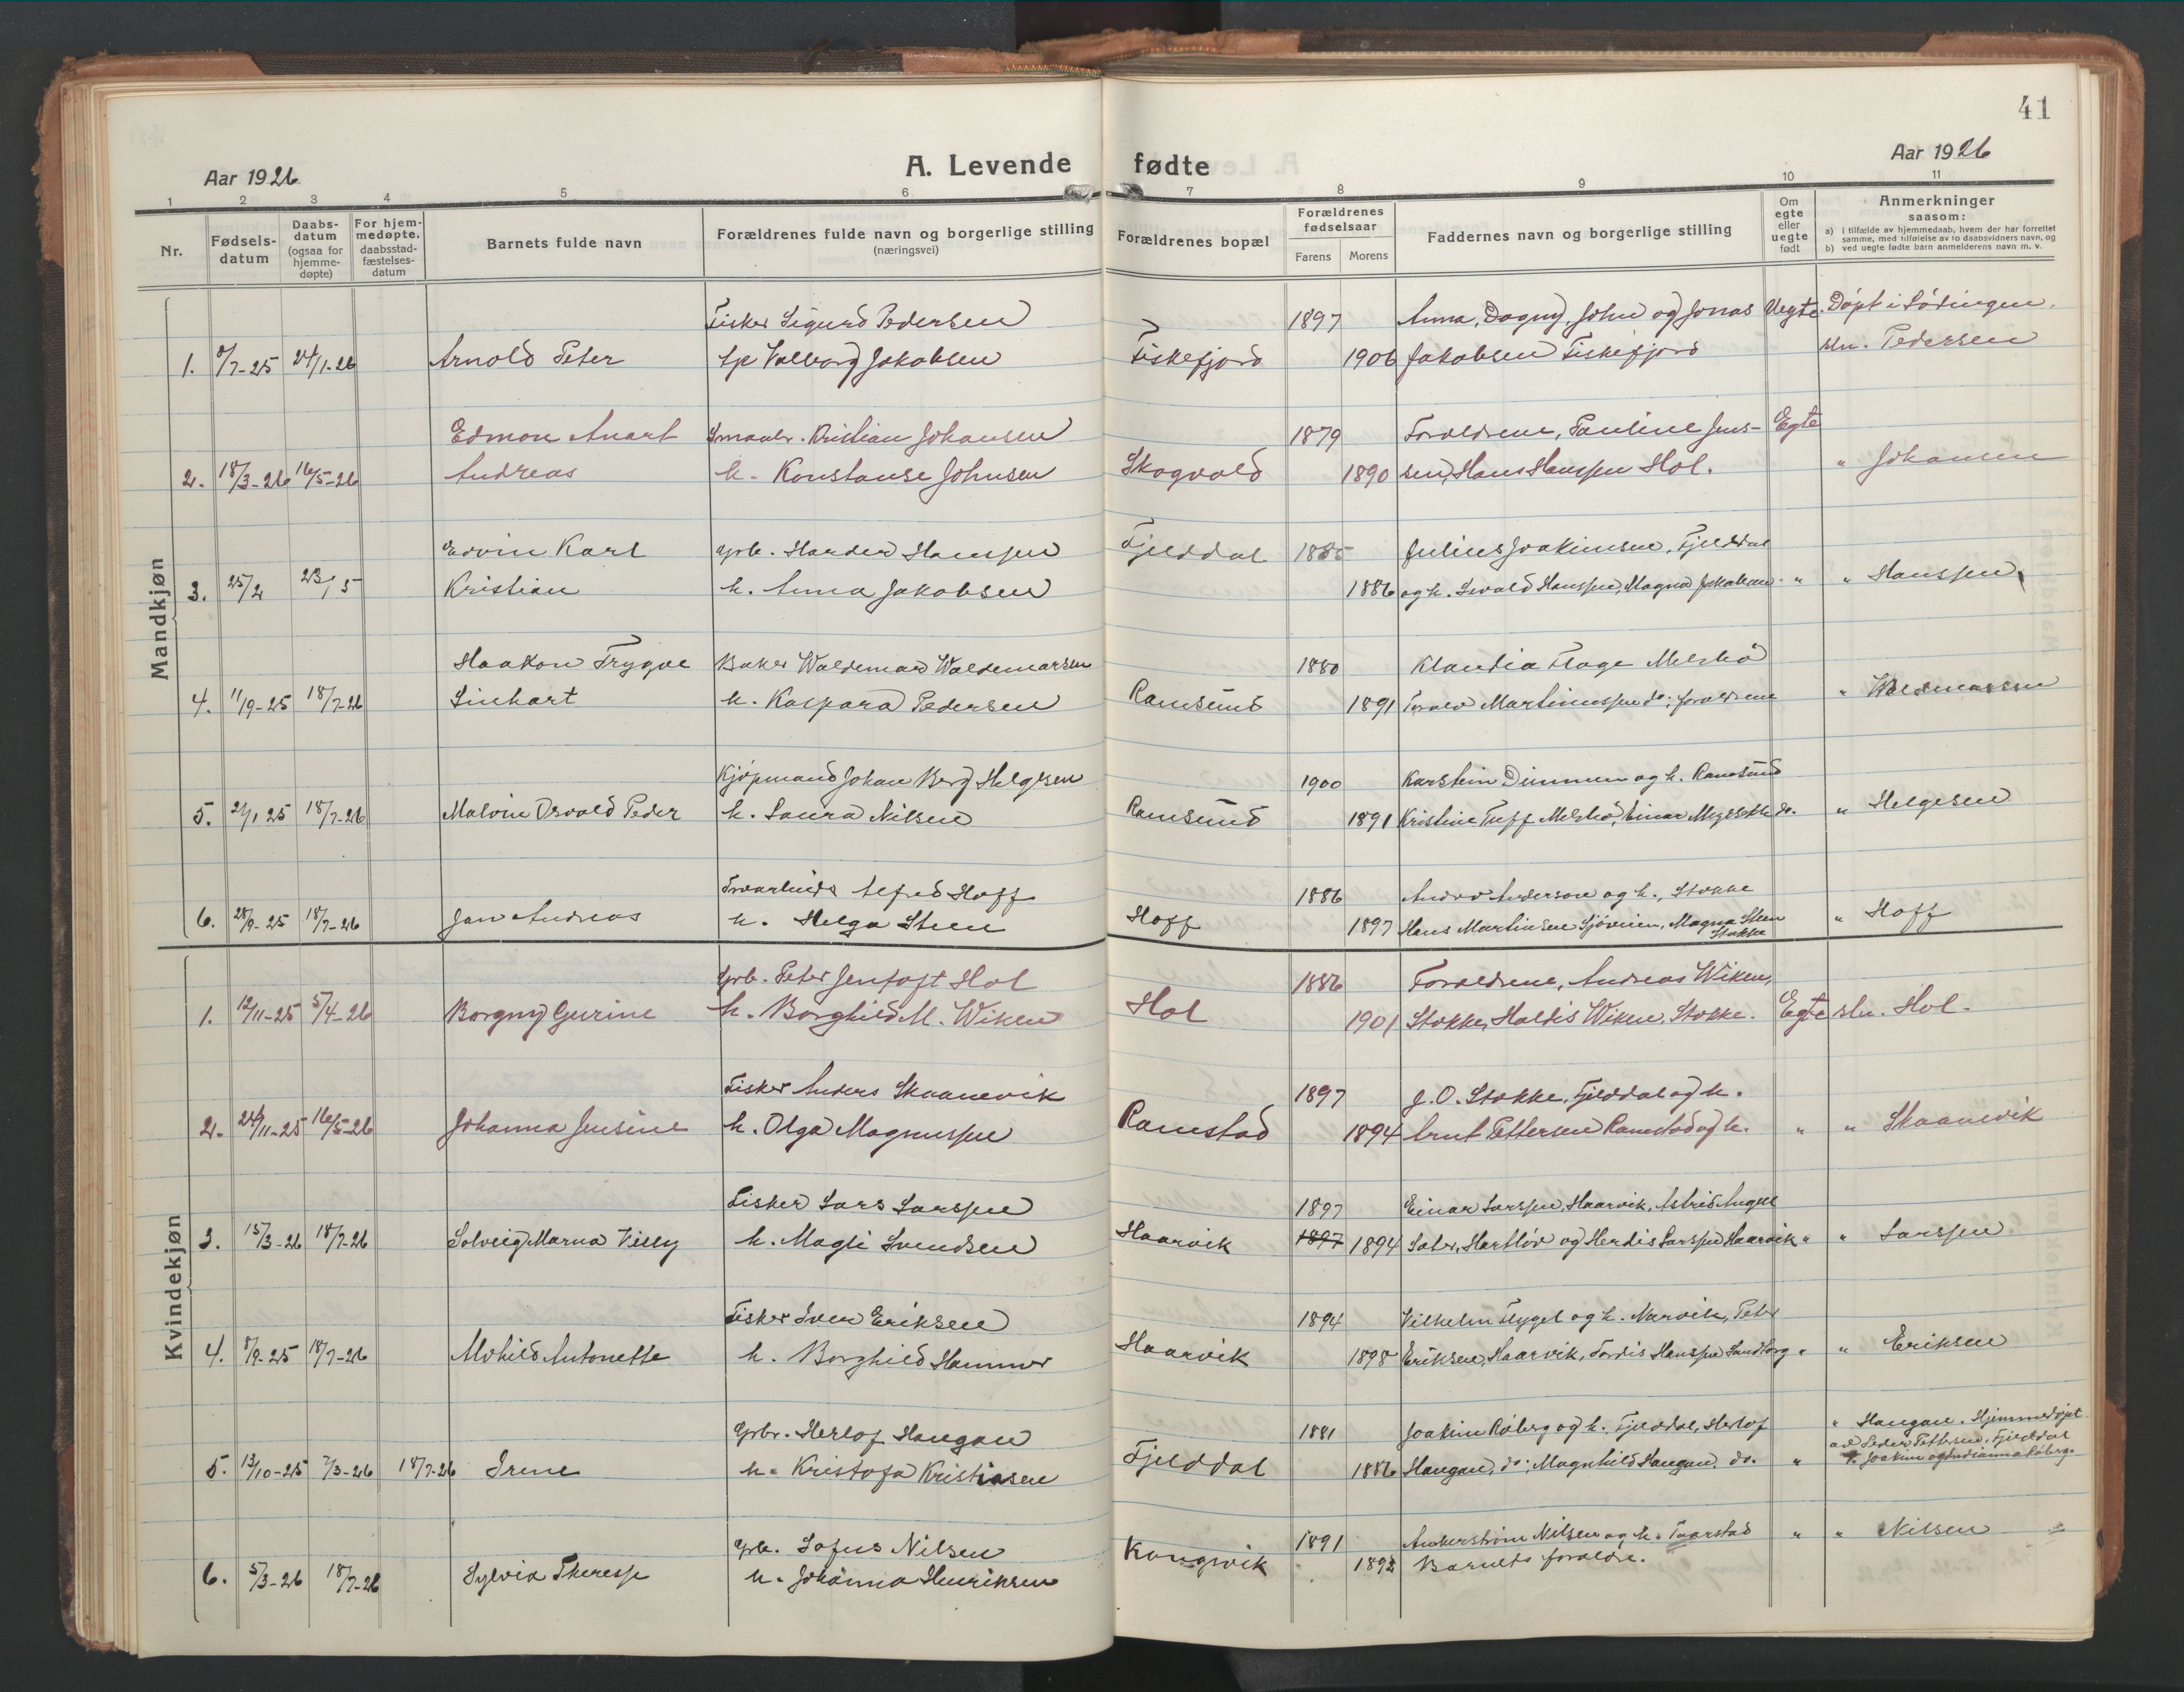 41
Aar 1926
A. Levende fødte
Aar 1926
1 2 3 4 5 6 7 8 9 10 11
Nr.
Fødselsdatum
Daabsdatum (ogsaa for hjemmedøpte)
For hjemmedøpte. daabsstadfæstelsesdatum
Barnets fulde navn
Forældrenes fulde navn og borgerlige stilling (næringsvei)
Forældrenes bopæl
Forældrenes fødselsaar
Farens Morens
Faddernes navn og borgerlige stilling
Om egte eller uegte født
Anmerkninger saasom:
a) i tilfælde av hjemmedaab, hvem der har forrettet samme, med tilføielse av to daabsvidners navn, og
b) ved uegte fødte barn anmelderens navn m. v.
Mandkjøn
Fisker Sigurd Pedersen 1897 Anna, Dagny, John og Jonas Uegte. Døpt i Lødingen.
1. /7-25 24/1-26 Arnold Peter Valborg Jakobsen Fiskefjord 1906 Jakobsen Fiskefjord sln. Pedersen
Edmon Anart Smaabr. Kristian Johansen 1879 Foreldrene, Pauline Jens- Egte
2. 18/3-26 16/5-26 Andreas h. Konstanse Johnsen Skogvold 1890 sen, Hans Hanssen Hol. " Johansen
Edvin Karl Grb. Harder Hanssen Fjelddal 1885 Julius Joakimsen, Fjelddal
3. 25/2 23/5 Kristian h. Anna Jakobsen 1886 og h. Sivald Hanssen, Magna Jakobsen " " Hanssen
Haakon Trygve Baker Waldemar Waldemarsen 1880 Klaudia Flage Melshø
4. 11/9-25 18/7-26 Linhart h. Kaspara Pedersen Ramsund 1891 Torald Martinussen do; foreldrene " Waldemarsen
Kjøpmand Johan Berg Helgesen 1900 Karstein Dimmen og h. Ramsund
5. 21/1 25 18/7-26 Malvin Osvald Peder h. Laura Nilsen Ramsund 1891 Kristine Tuff Melshø, Einar do. " Helgesen
Alfred Hoff 1886 Andor Anderson og h., Stokke
6. 28/9-25 18/7-26 Jan Andreas h. Helga Steen Hoff 1897 Hans Martinsen Sjøveien, Magna Steen Stokke " Hoff
Kvindekjøn
Grb. Peter Jentoft Hol 1886 Foreldrene, Andreas Wiken,
1. 12/11-25 5/4-26 Borgny Gurine h. Borghild M. Wiken Hol 1901 Stokke, Haldis Wiken, Stokke. Egte sln. Hol.
Fisker Anders Skaanevik 1897 J. O. Stokke, Fjelddal og h.
2. 24/11-25 16/5-26 Johanna Jensine h. Olga Magnussen Ramstad 1894 Arnt Pettersen Ramstad og h. " " Skaanevik
Fisker Lars Larssen 1897 Einar Larssen, Haarvik, Astrid Angel
3. 15/3-26 18/7-26 Solveig Marna Villy h. Magli Svendsen Haarvik 1897 1894 Sater, Hartløv og Herdis Larssen Haarvik " " Larssen
Fisker Sven Eriksen 1894 Vilhelm Flygel og h. Narvik, Peter
4. 8/9-25 18/7-26 Alvhild Antonette h. Borghild Hammer Haarvik 1898 Eriksen, Haarvik, Tordis Hanssen Sandtorg " " Eriksen
Grbr. Herlof Haugan 1881 Joakim Råberg og h. Fjelddal, Herlof " Haugan. Hjemmedøpt
5. 13/10-25 7/3-26 18/7-26 Irene h. Kristofa Kristiasen Fjelddal 1886 Haugan, do; Magnhild Haugan, do. " av Peder Pettersen, Fjelddal Joakim og Indianna Råberg.
Grb. Sofus Nilsen 1891 Ankerstrøm Nilsen og h. Taarstad " " Nilsen
6. 5/3-26 18/7-26 Sylvia Theresse h. Johanna Henriksen Kongsvik 1892 Barnets foreldre.